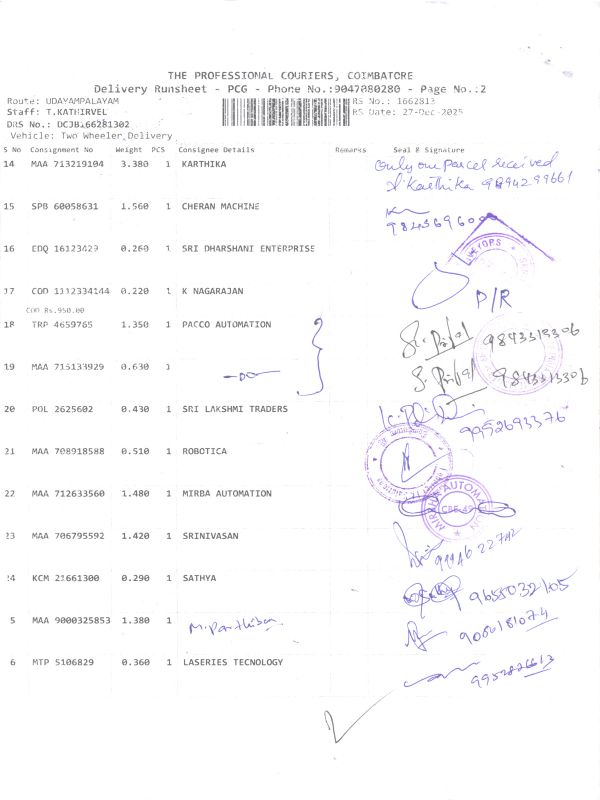 THE PROFESSIONAL COURIERS, COIMBATORE
Delivery Runsheet - PCG - Phone No.:9047080280 - Page No.:2
Route: UDAYAMPALAYAM RS No.: 1662813
Staff: T.KATHIRVEL RS Date: 27-Dec-2025
DRS No.: DCJB166281302
Vehicle: Two Wheeler Delivery
S No Consignment No Weight PCS Consignee Details Remarks Seal & Signature
14 MAA 713219104 3.380 1 KARTHIKA Only one parcel received
Karthika 9894299661
15 SPB 60058631 1.560 1 CHERAN MACHINE
9843696000
16 EDQ 16123429 0.260 1 SRI DHARSHANI ENTERPRISE
17 COD 1112334144 0.220 1 K NAGARAJAN P/R
COD Rs.950.00
18 TRP 4659765 1.350 1 PACCO AUTOMATION 9843313306
19 MAA 715133929 0.630 1 -DO- 9843313306
20 POL 2625602 0.430 1 SRI LAKSHMI TRADERS 9952693376
21 MAA 708918588 0.510 1 ROBOTICA
22 MAA 712633560 1.480 1 MIRBA AUTOMATION
23 MAA 706795592 1.420 1 SRINIVASAN 9994622742
24 KCM 21661300 0.290 1 SATHYA 9655032105
5 MAA 9000325853 1.380 1 M. Parthiban 9006181074
6 MTP 5106829 0.360 1 LASERIES TECNOLOGY 9952826613